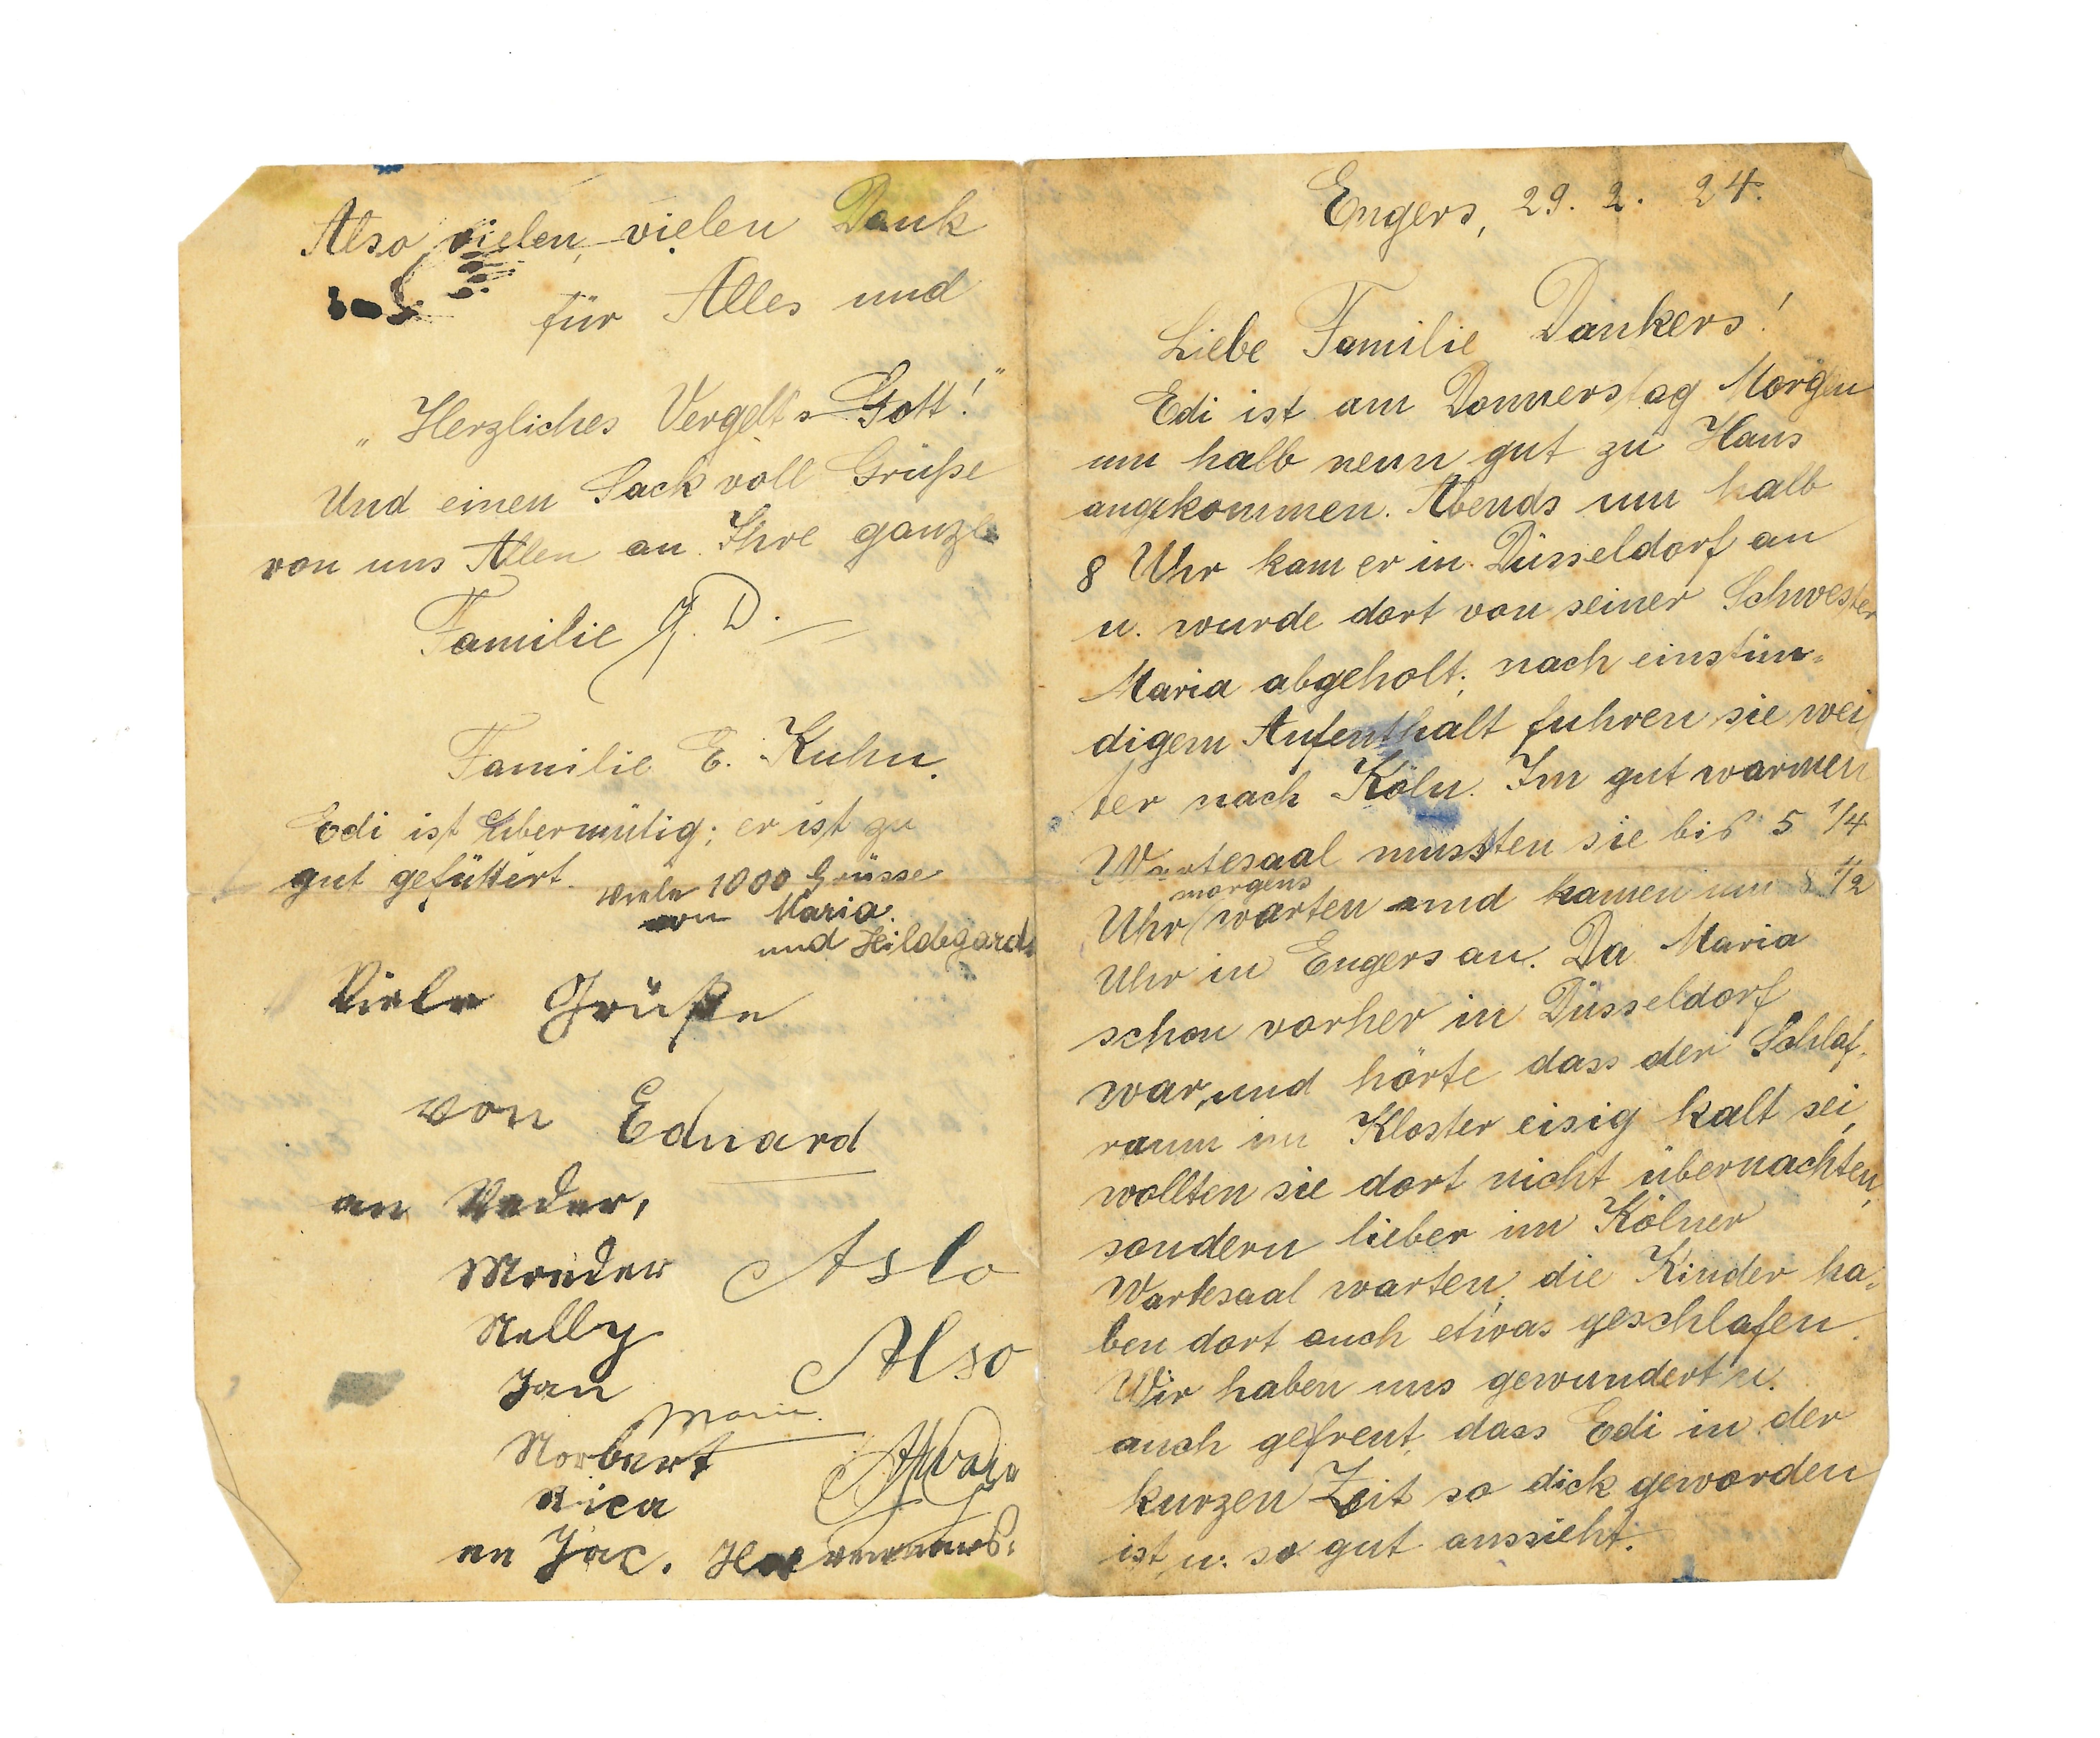 Engers, 29. 2. 24.
Liebe Familie Dankers!
Edi ist am Donnerstag Morgen
um halb neun gut zu Haus
angekommen. Abends um halb
8 Uhr kam er in Düsseldorf an
u. wurde dort von seiner Schwester
Maria abgeholt; nach einstün-
digem Aufenthalt fuhren sie wei
ter nach Köln. Im gut warmen
Wartesaal mussten sie bis 5 1/4
morgens
Uhr warten und kamen um 8 1/2
Uhr in Engers an. Da Maria
schon vorher in Düsseldorf
war, und hörte dass der Schlaf-
raum im Kloster eisig kalt sei,
wollten sie dort nicht übernachten,
sondern lieber im Kölner
Wartesaal warten; die Kinder ha-
ben dort auch etwas geschlafen.
Wir haben uns gewundert u.
auch gefreut, dass Edi in der
kurzen Zeit so dick geworden
ist u. so gut aussieht.
Also vielen, vielen Dank
für Alles und
„Herzliches Vergelts Gott!"
Und einen Sack voll Grüße
von uns Allen an Ihre ganze
Familie J. D.
Familie E. Kuhn.
Edi ist übermütig; er ist zu
gut gefüttert.
viele 1000 Grüsse
von Maria.
und Hildegard.
Viele Grüße
von Eduard
an Vader,
Mouder
Nelly
Jan
Marie.
Norbert
Rica
en Jac.
Aslo
Also